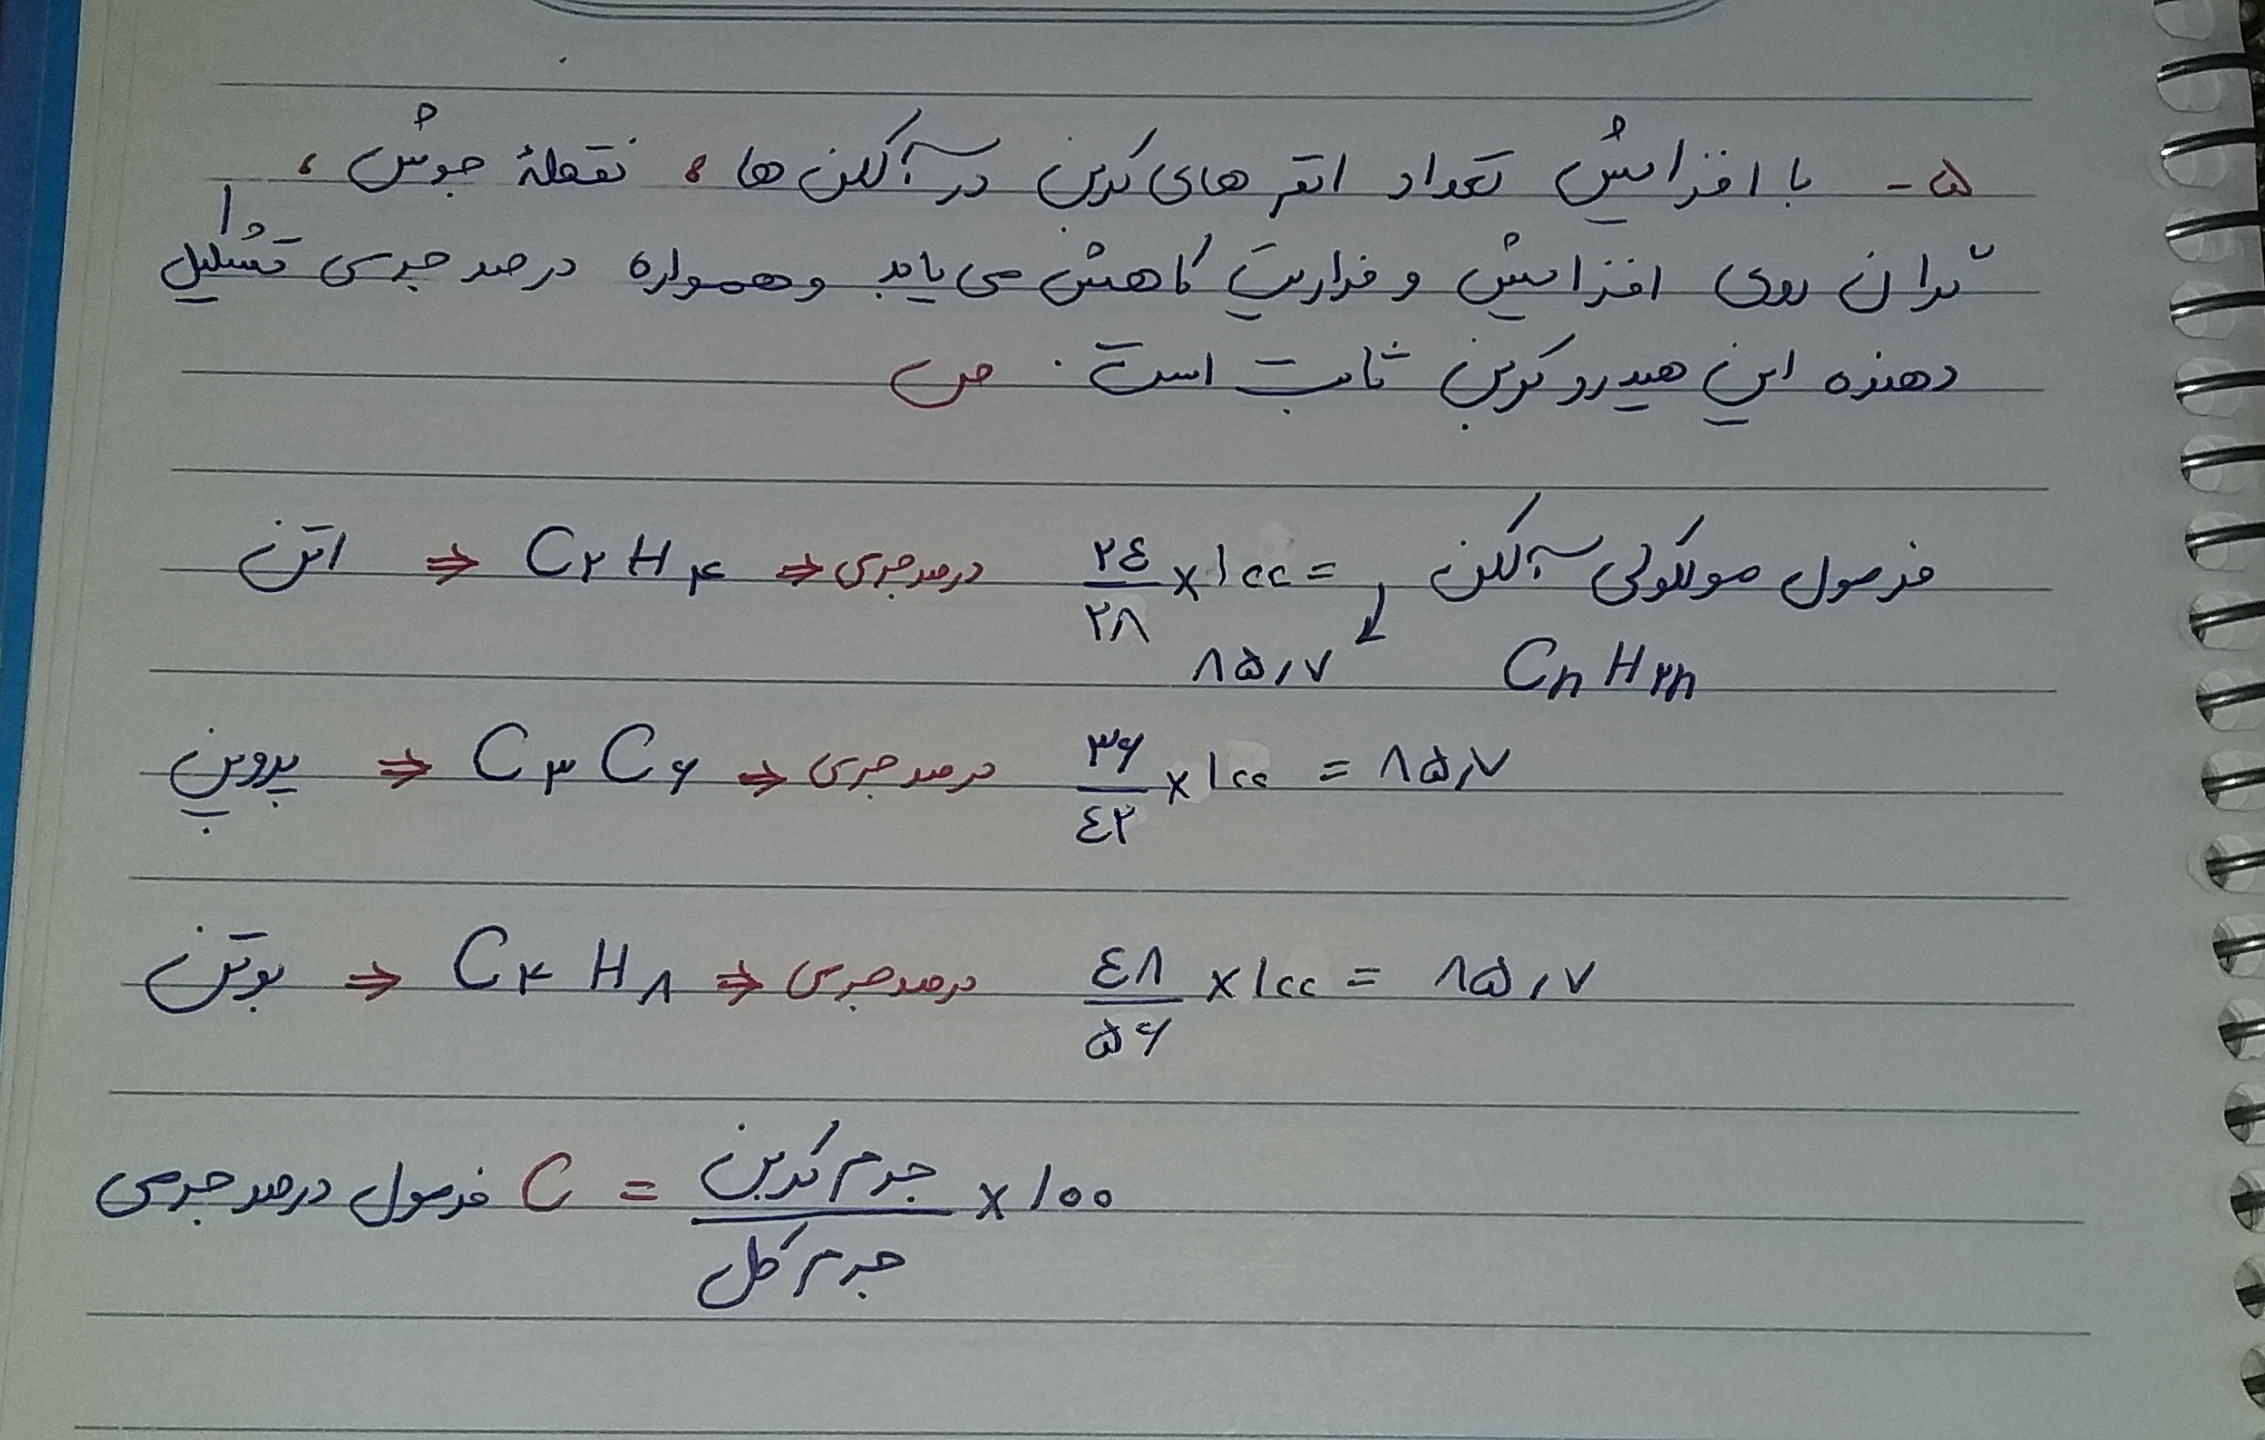 ۵- با افزایش تعداد اتم های کربن در آلکن ها ، نقطهٔ جوش ،
گران روی افزایش و فراریت کاهش می یابد و همواره درصد جرمی تشکیل
دهنده این هیدروکربن ثابت است . ص
اتن ⇒ C۲H۴ ⇒ درصد جرمی ۲۴/۲۸ × ۱۰۰ = ۸۵,۷ فرمول مولکولی آلکن
↓ CnH۲n
پروپن ⇒ C۳C۶ ⇒ درصد جرمی ۳۶/۴۲ × ۱۰۰ = ۸۵,۷
بوتن ⇒ C۴H۸ ⇒ درصد جرمی ۴۸/۵۶ × ۱۰۰ = ۸۵,۷
فرمول درصد جرمی C = جرم کربن / جرم کل × ۱۰۰